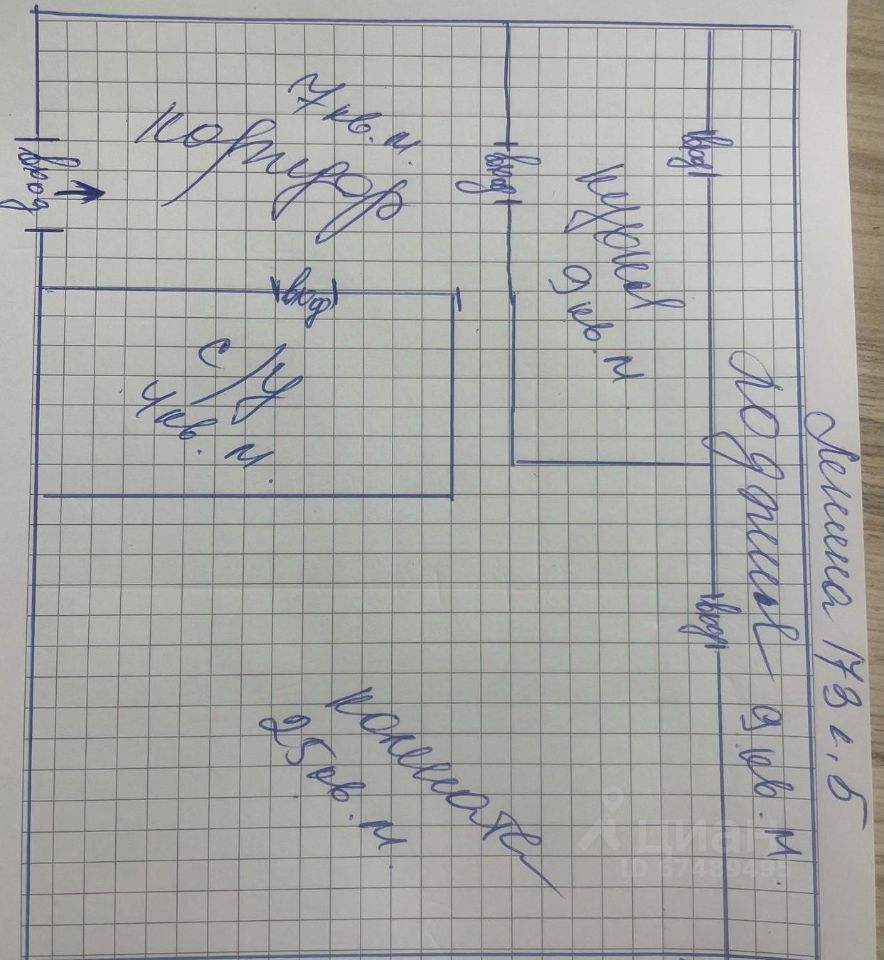 Ленина 173 к. 5
Лоджия 9 кв. м.
вход
кухня
9 кв. м
вход
7 кв. м.
коридор
вход
вход
с/у
4 кв. м.
вход
комната
25 кв. м.
ЦИАН
ID 67489495